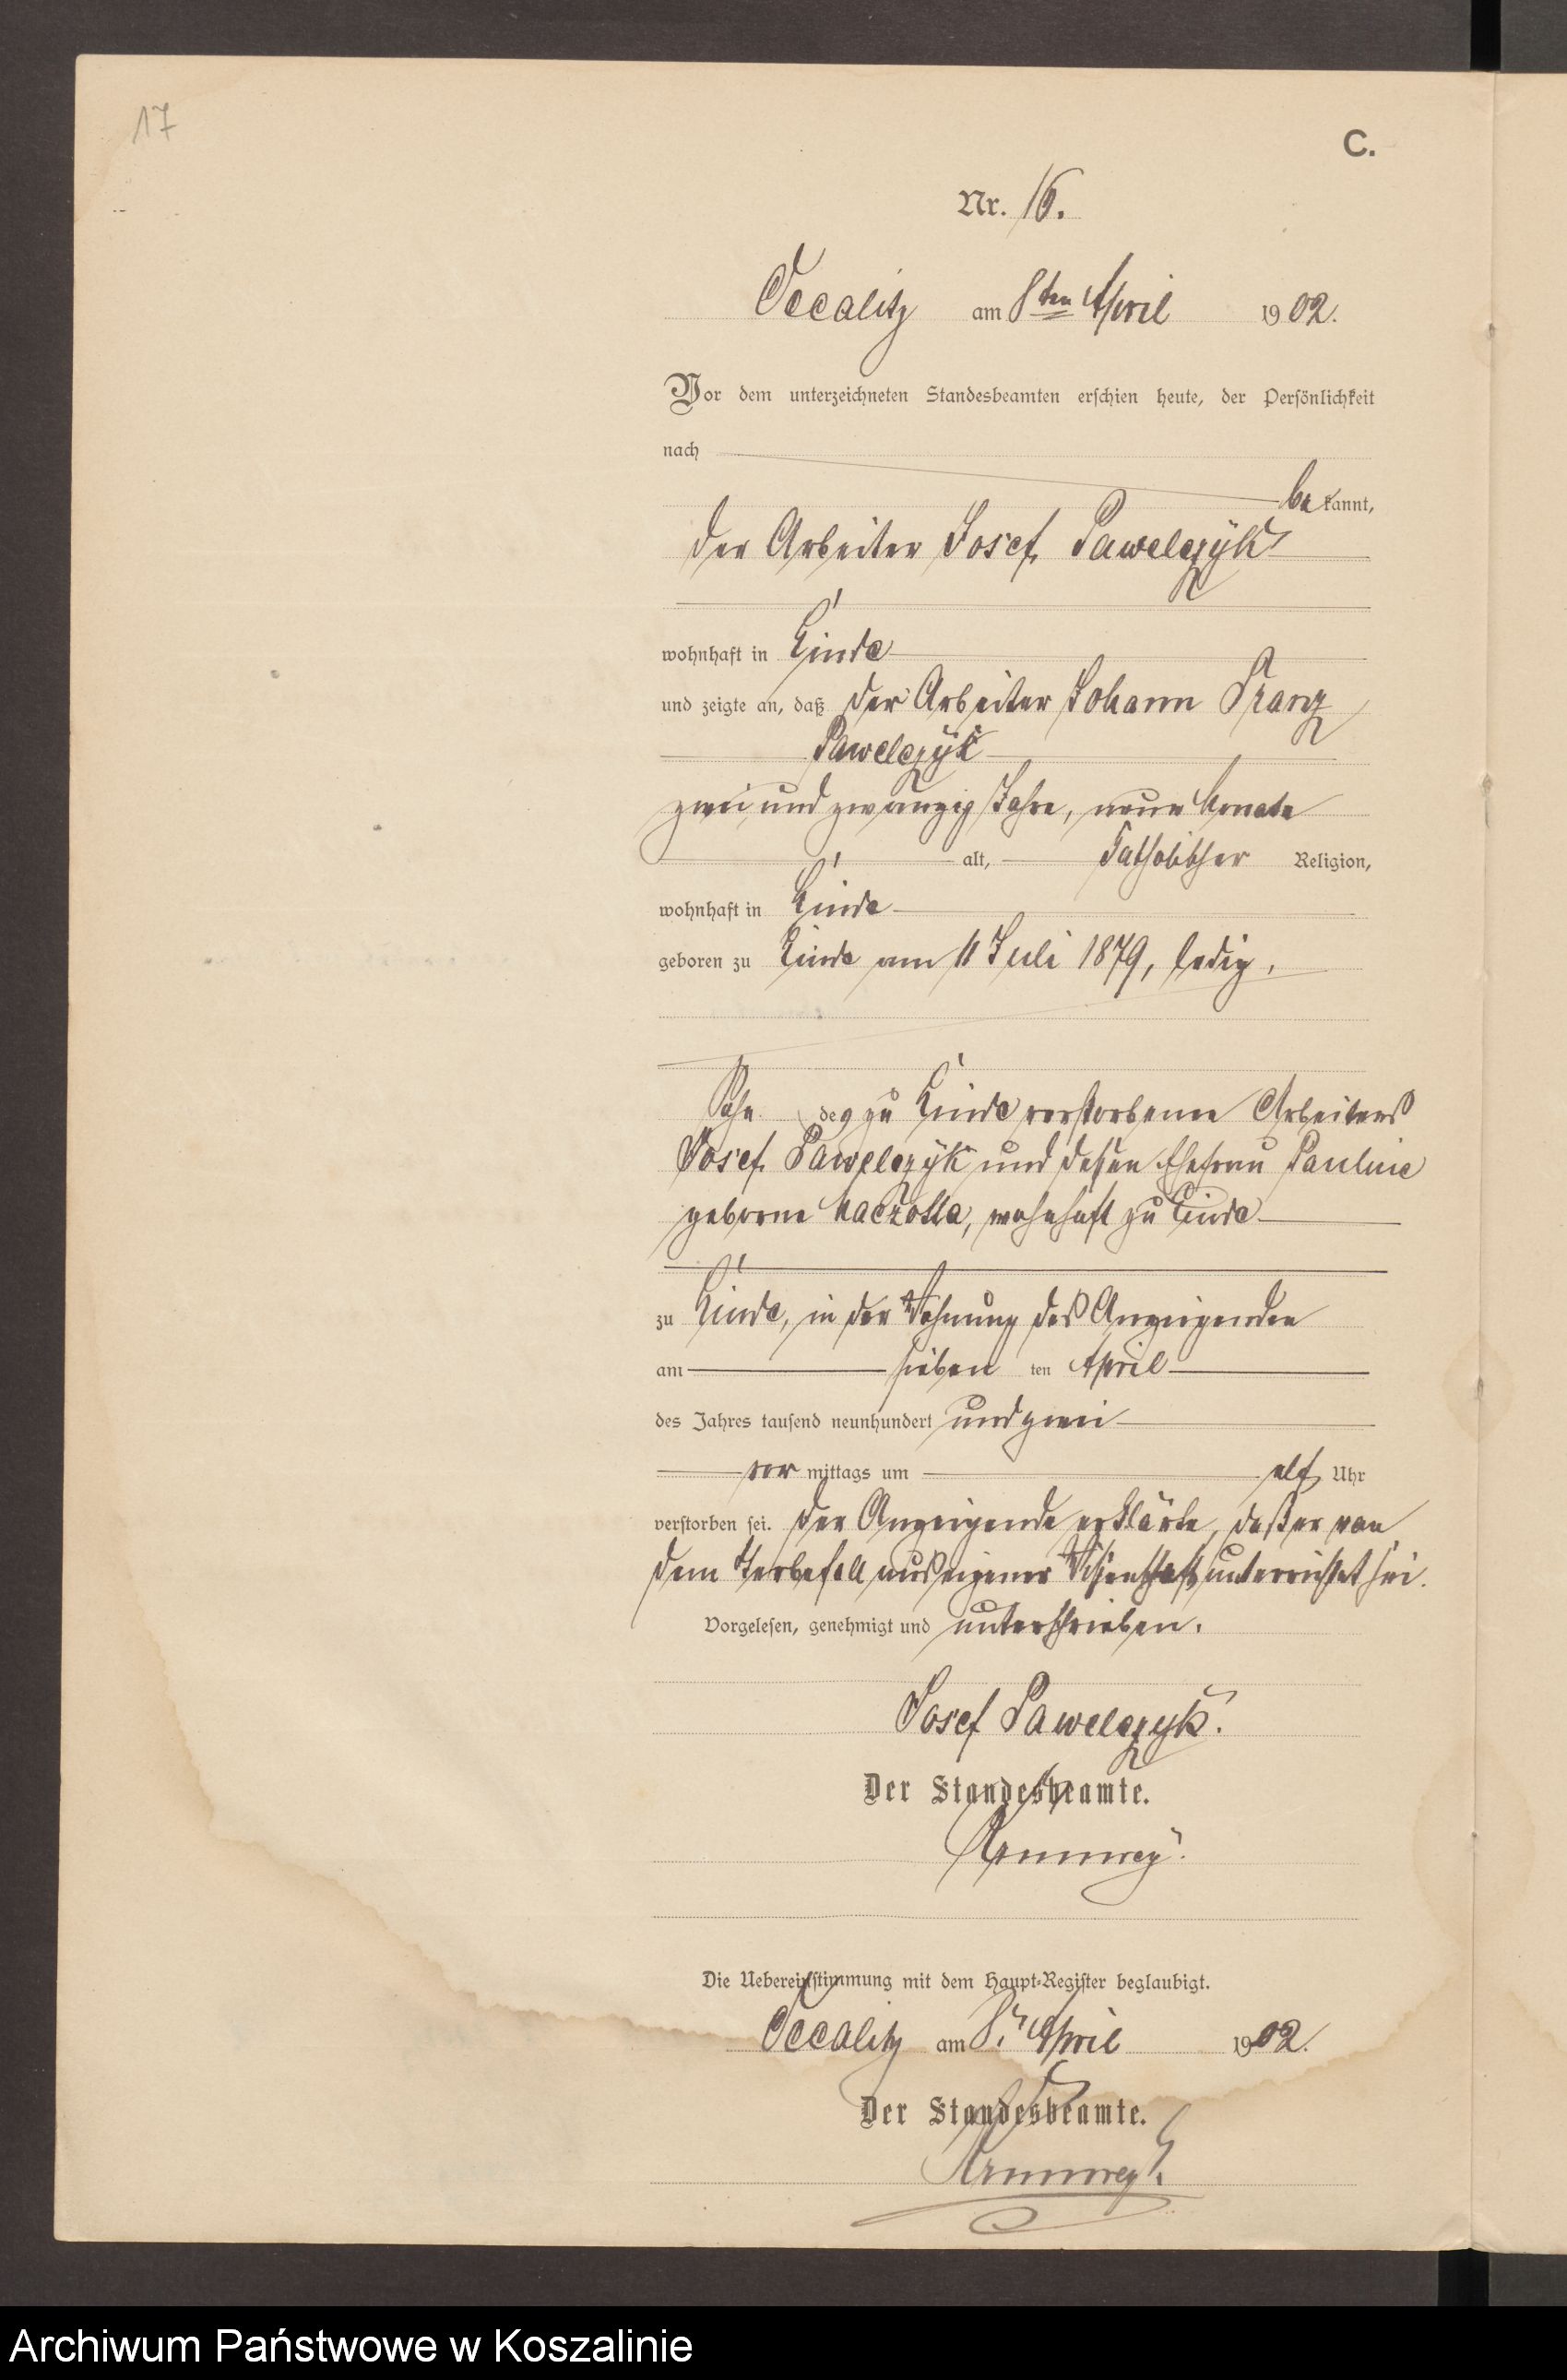 17
C.
Nr. 16.
Occalitz am 8ten April 1902.
Vor dem unterzeichneten Standesbeamten erschien heute, der Persönlichkeit
nach
bekannt,
der Arbeiter Josef Pawelczÿk
wohnhaft in Linde
und zeigte an, daß der Arbeiter Johann Franz
Pawelczÿk
zwei und zwanzig Jahre, neun Monate
alt, katholischer Religion,
wohnhaft in Linde
geboren zu Linde am 11 Juli 1879, ledig,
Sohn des zu Linde verstorbenen Arbeiters
Josef Pawelczÿk und dessen Ehefrau Pauline
geborne, wohnhaft zu Linde
zu Linde, in der Wohnung des Anzeigenden
am sieben ten April
des Jahres tausend neunhundert und zwei
vor mittags um elf Uhr
verstorben sei. Der Anzeigende erklärte, daß er von
dem Sterbefall aus eigener Wissenschaft unterrichtet sei.
Vorgelesen, genehmigt und unterschrieben.
Josef Pawelczyk.
Der Standesbeamte.
Die Uebereinstimmung mit dem Haupt-Register beglaubigt.
Occalitz am 8. April 1902.
Der Standesbeamte.
Archiwum Państwowe w Koszalinie